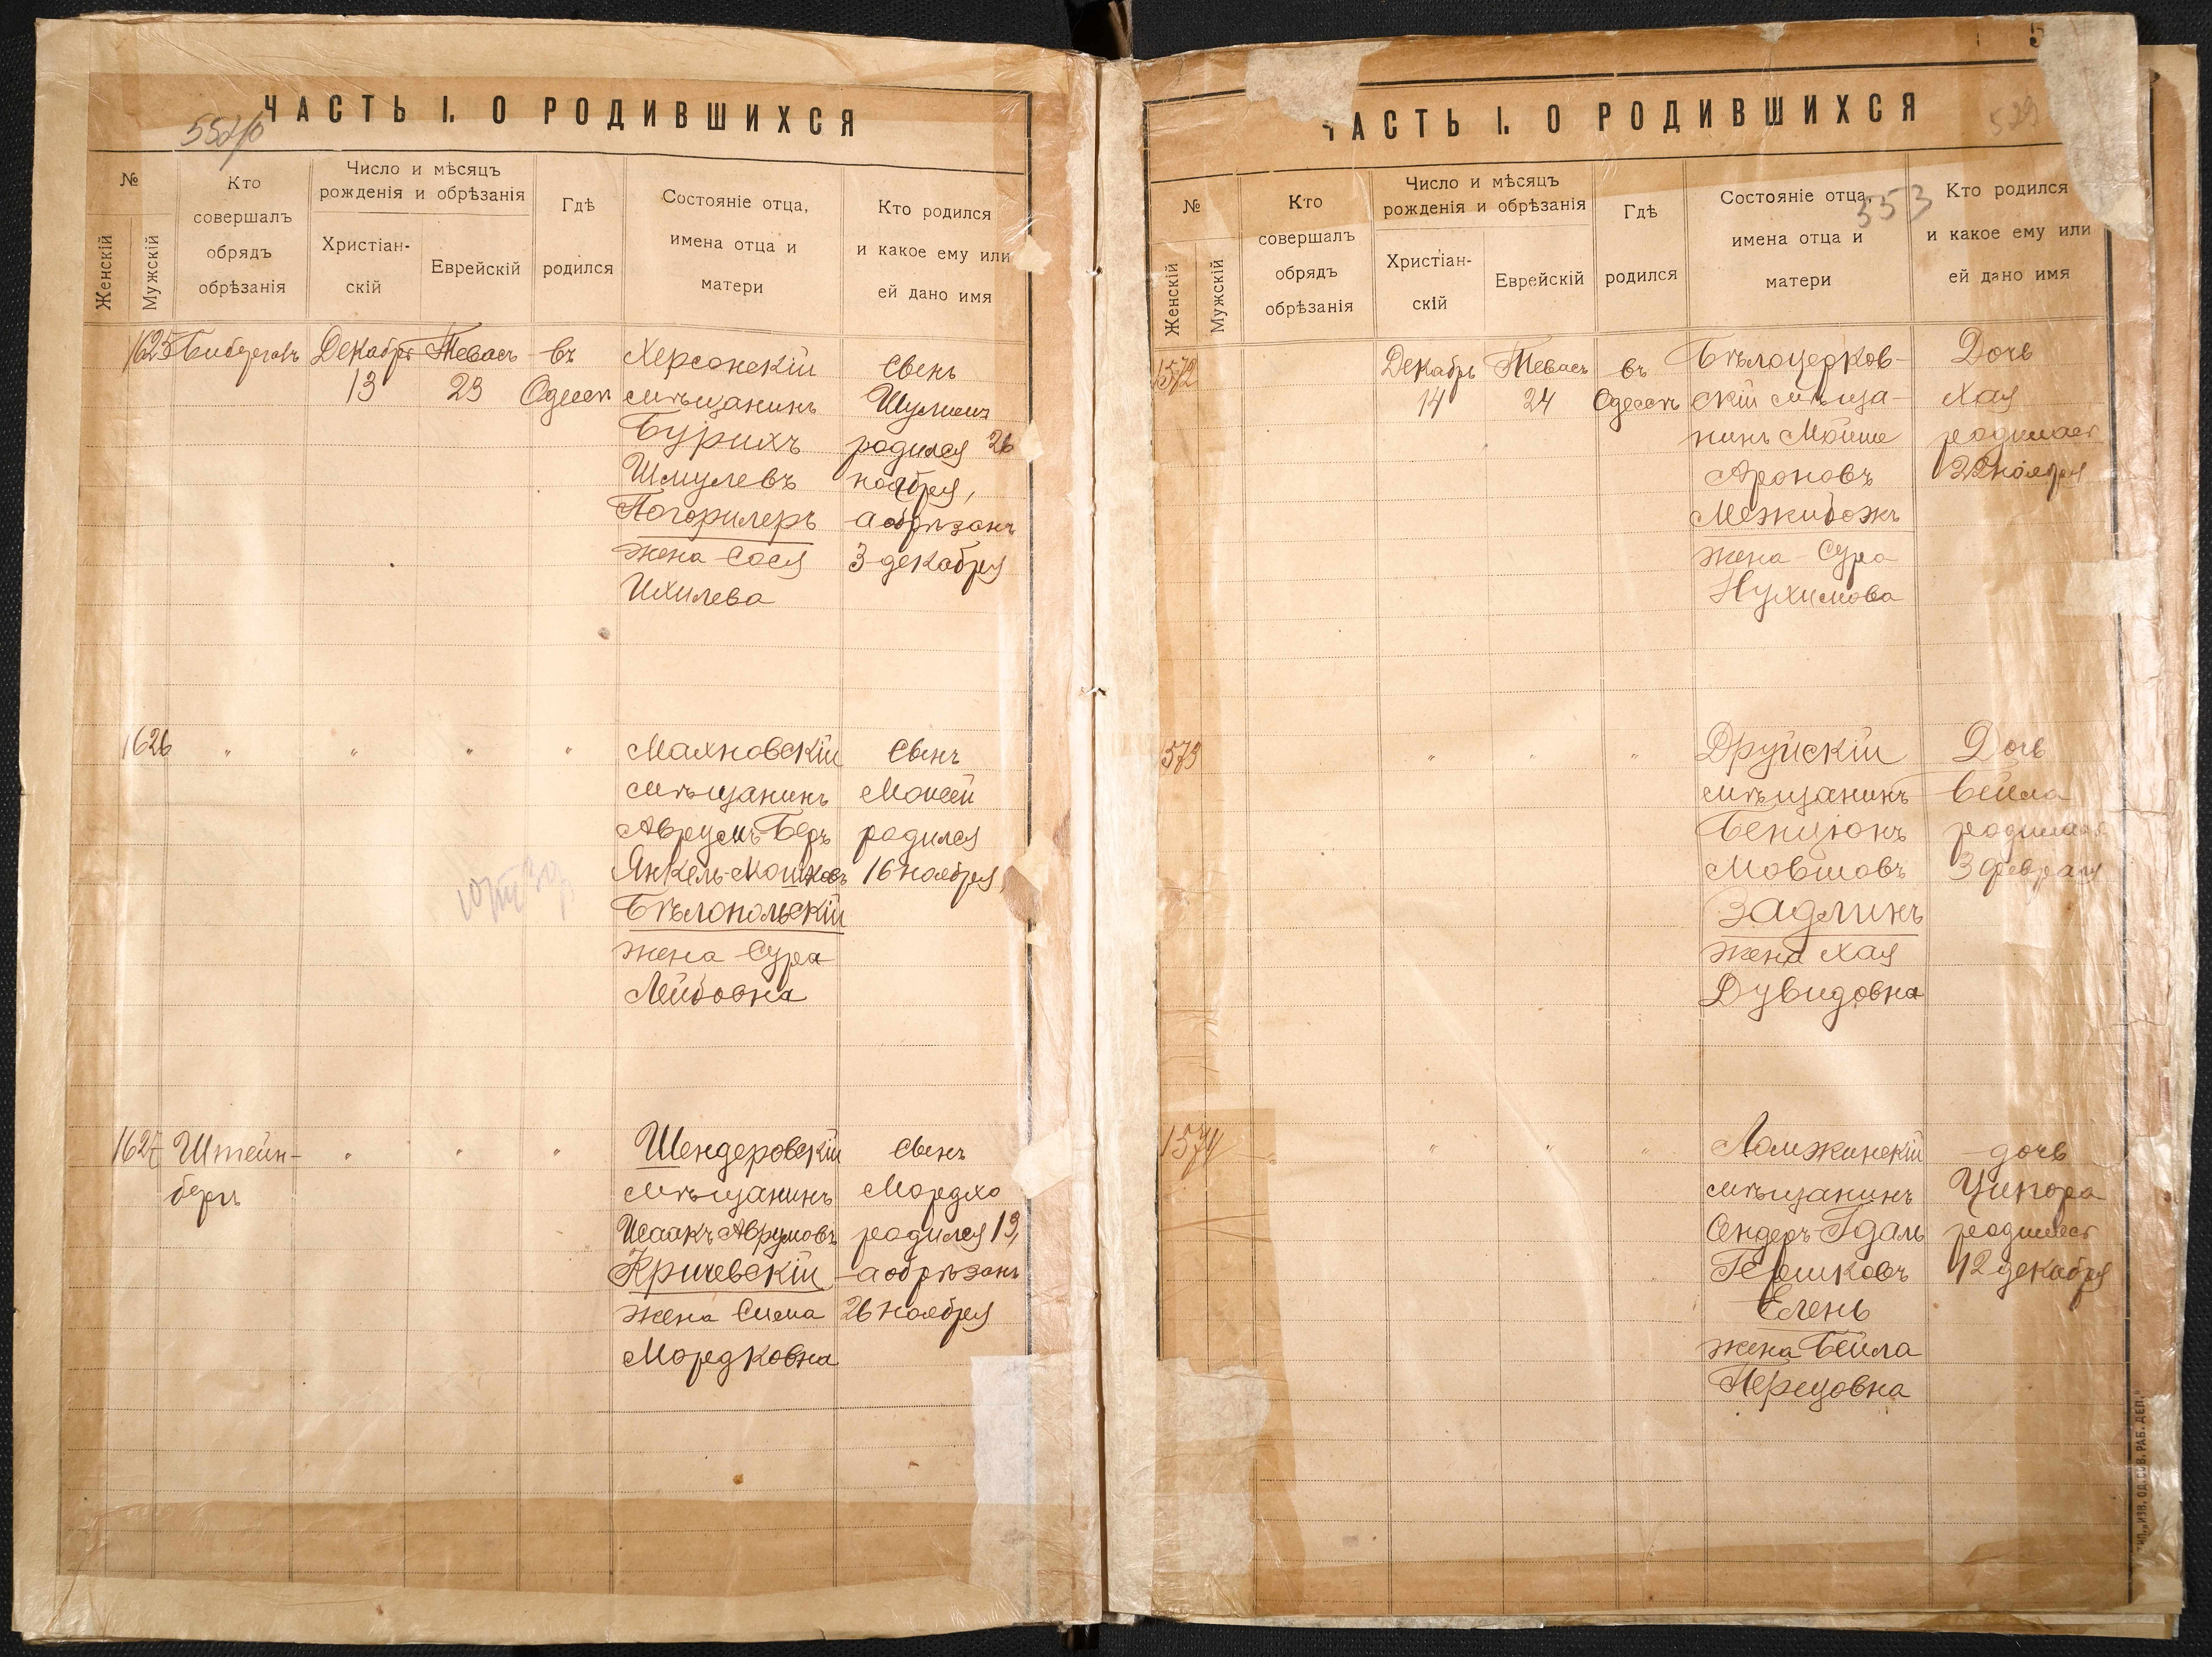 ЧАСТЬ I. О РОДИВШИХСЯ
№
Женскій
Мужскій
Кто
совершалъ
обрядъ
обрѣзанія
Число и мѣсяцъ
рожденія и обрѣзанія
Христіан-
скій
Еврейскій
Гдѣ
родился
Состояніе отца,
имена отца и
матери
Кто родился
и какое ему или
ей дано имя
1625
Декабря
13
Тевасъ
23
въ
Одессѣ
Херсонскій
мѣщанинъ
Бурихъ
Шмулевъ
Погорилеръ
жена Сося
Ихилева
Сынъ
родился 26
ноября,
а обрѣзанъ
3 декабря
1626
"
"
"
"
Махновскій
мѣщанинъ
Аврумъ Беръ
Янкель-Мошковъ
Бѣлопольскій
жена Сура
Лейбовна
Сынъ
Моисей
родился
16 ноября,
1627
Штейн-
бергъ
"
"
"
Шендеровскій
мѣщанинъ
Исаакъ Аврумовъ
Кричевскій
жена Сима
Мордковна
Сынъ
Мордхо
родился 19,
а обрѣзанъ
26 ноября
ЧАСТЬ I. О РОДИВШИХСЯ
529
353
№
Женскій
Мужскій
Кто
совершалъ
обрядъ
обрѣзанія
Число и мѣсяцъ
рожденія и обрѣзанія
Христіан-
скій
Еврейскій
Гдѣ
родился
Состояніе отца,
имена отца и
матери
Кто родился
и какое ему или
ей дано имя
1572
Декабрь
14
Тевасъ
24
въ
Одессѣ
Бѣлоцерков-
скій мѣща-
нинъ Мойше
Ароновъ
Межибожъ
жена Сура
Нухимова
Дочь
Хая
родилась
22 ноября
1573
"
"
"
Друйскій
мѣщанинъ
Бенціонъ
Мовшовъ
Задлинъ
жена Хая
Дувидовна
Дочь
Бейла
родилась
3 февраля
1574
"
"
"
Ломжинскій
мѣщанинъ
Сендеръ-Гдаль
Гершковъ
Елень
жена Бейла
Перецовна
дочь
Ципора
родилась
12 декабря
ТИП. „ИЗВ. ОД. СОВ. РАБ. ДЕП."